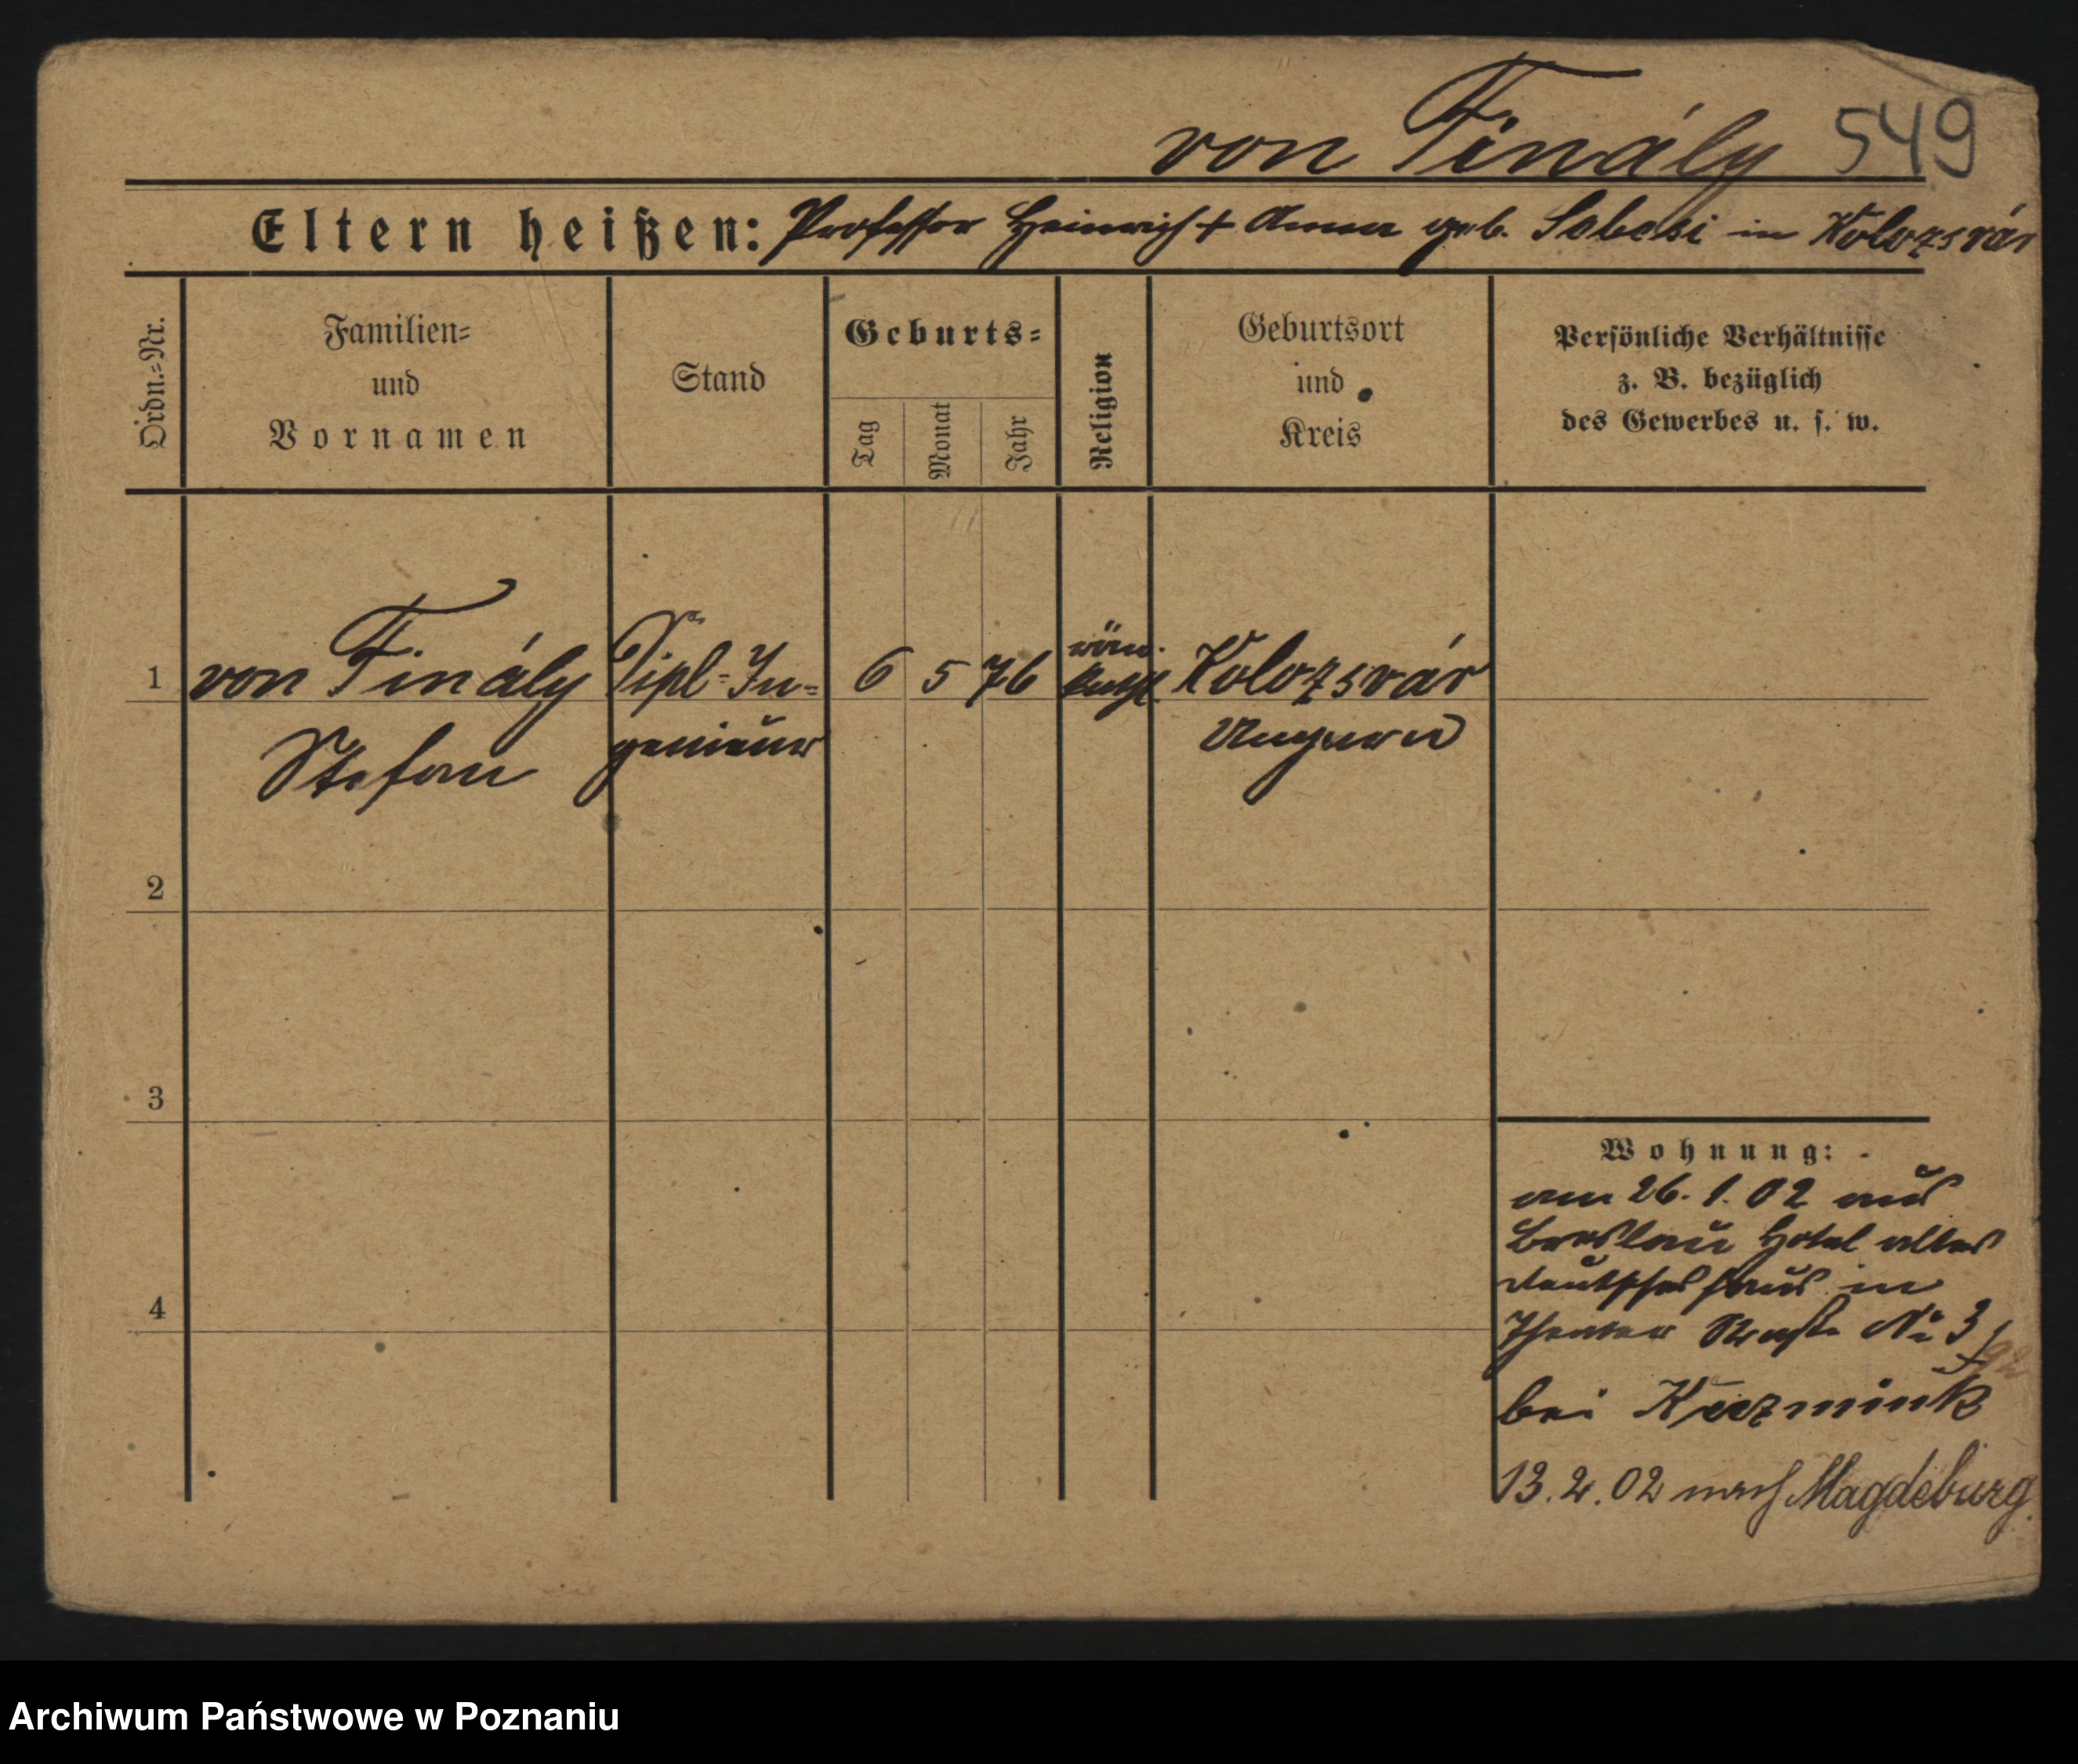 von Finály 549
Eltern heißen: Professor Heinrich + Anna geb. Sebesi in Kolozsvár
Ordn.-Nr.
Familien-
und
Vornamen
Stand
Geburts-
Tag
Monat
Jahr
Religion
Geburtsort
und
Kreis
Persönliche Verhältnisse
z. B. bezüglich
des Gewerbes u. s. w.
1 von Finály Dipl-In- 6 5 76 röm. Kolozsvár
Stefan genieur kathl. Ungarn
2
3
4
Wohnung:
am 26. 1. 02 aus
Breslau Hotel altes
deutsches Haus in
Theater Straße No 3
bei Kuzmink
13. 2. 02 nach Magdeburg.
Archiwum Państwowe w Poznaniu